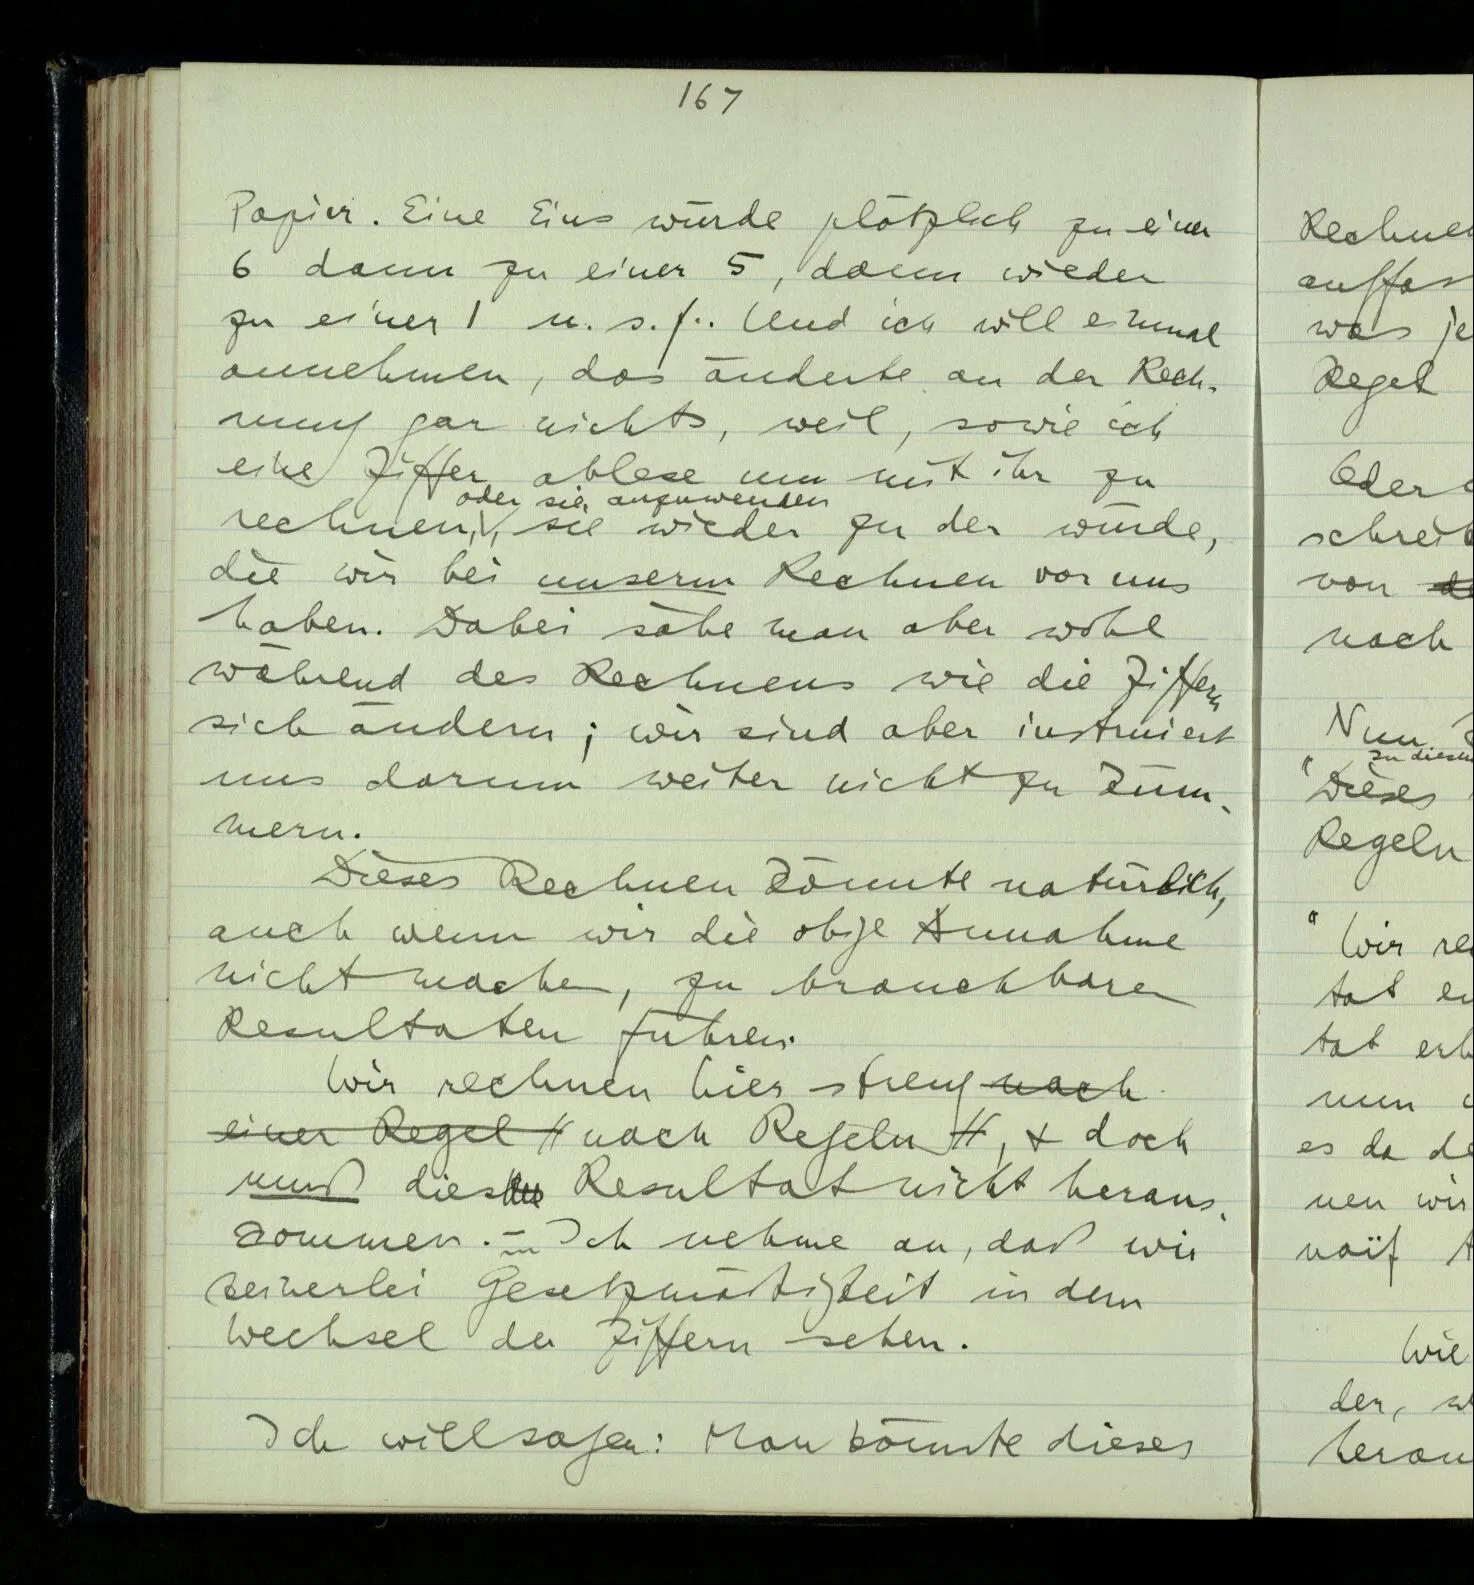 167
Papier. Eine Eins würde plötzlich zu einer
6 dann zu einer 5, dann wieder
zu einer 1 u. s. f.. Und ich will einmal
annehmen, das änderte an der Rech-
nung gar nichts, weil, sowie ich
eine Ziffer ablese um mit ihr zu
oder sie anzuwenden
rechnen, sie wieder zu der würde,
die wir bei unserm Rechnen vor uns
haben. Dabei sähe man aber wohl
während des Rechnens wie die Ziffern
sich ändern; wir sind aber instruiert
uns darum weiter nicht zu küm-
mern.
Dieses Rechnen könnte natürlich,
auch wenn wir die obige Annahme
nicht machen, zu brauchbaren
Resultaten führen.
Wir rechnen hier streng nach
einer Regel // nach Regeln //, & doch
muß dieses Resultat nicht heraus-
kommen. – Ich nehme an, daß wir
keinerlei Gesetzmäßigkeit in dem
Wechsel der Ziffern sehen.
Ich will sagen: Man könnte dieses
Rechnen
auffas
was je
Regel
Oder
schreib
von
nach
Nun
zu diesem
"Dieses
Regeln
"Wir re
tat er
tat erh
nun
es da de
nen wir
naïf
Wie
der, w
herau